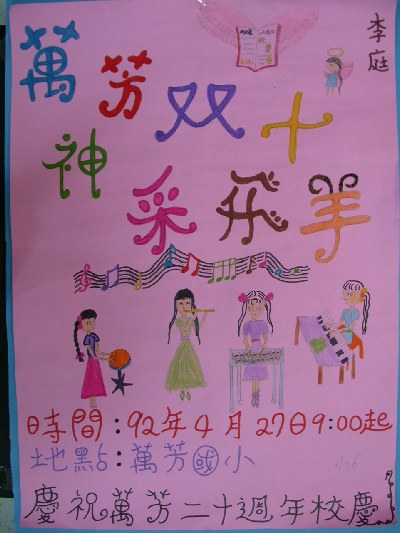 李庭
萬芳双十
神采飛羊
時間：92年4月27日9:00起
地點：萬芳國小
慶祝萬芳二十週年校慶